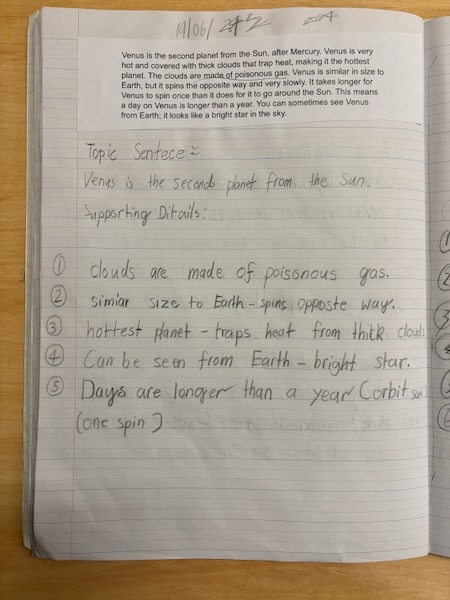 19/06/
Venus is the second planet from the Sun, after Mercury. Venus is very
hot and covered with thick clouds that trap heat, making it the hottest
planet. The clouds are made of poisonous gas. Venus is similar in size to
Earth, but it spins the opposite way and very slowly. It takes longer for
Venus to spin once than it does for it to go around the Sun. This means
a day on Venus is longer than a year. You can sometimes see Venus
from Earth; it looks like a bright star in the sky.
Topic Sentece:
Venus is the second planet from the Sun.
Supporting Ditails:
① clouds are made of poisonous gas.
② simiar size to Earth - spins opposte way.
③ hottest planet - traps heat from thick clouds
④ Can be seen from Earth - bright star.
⑤ Days are longer than a year (orbit sun)
(one spin)